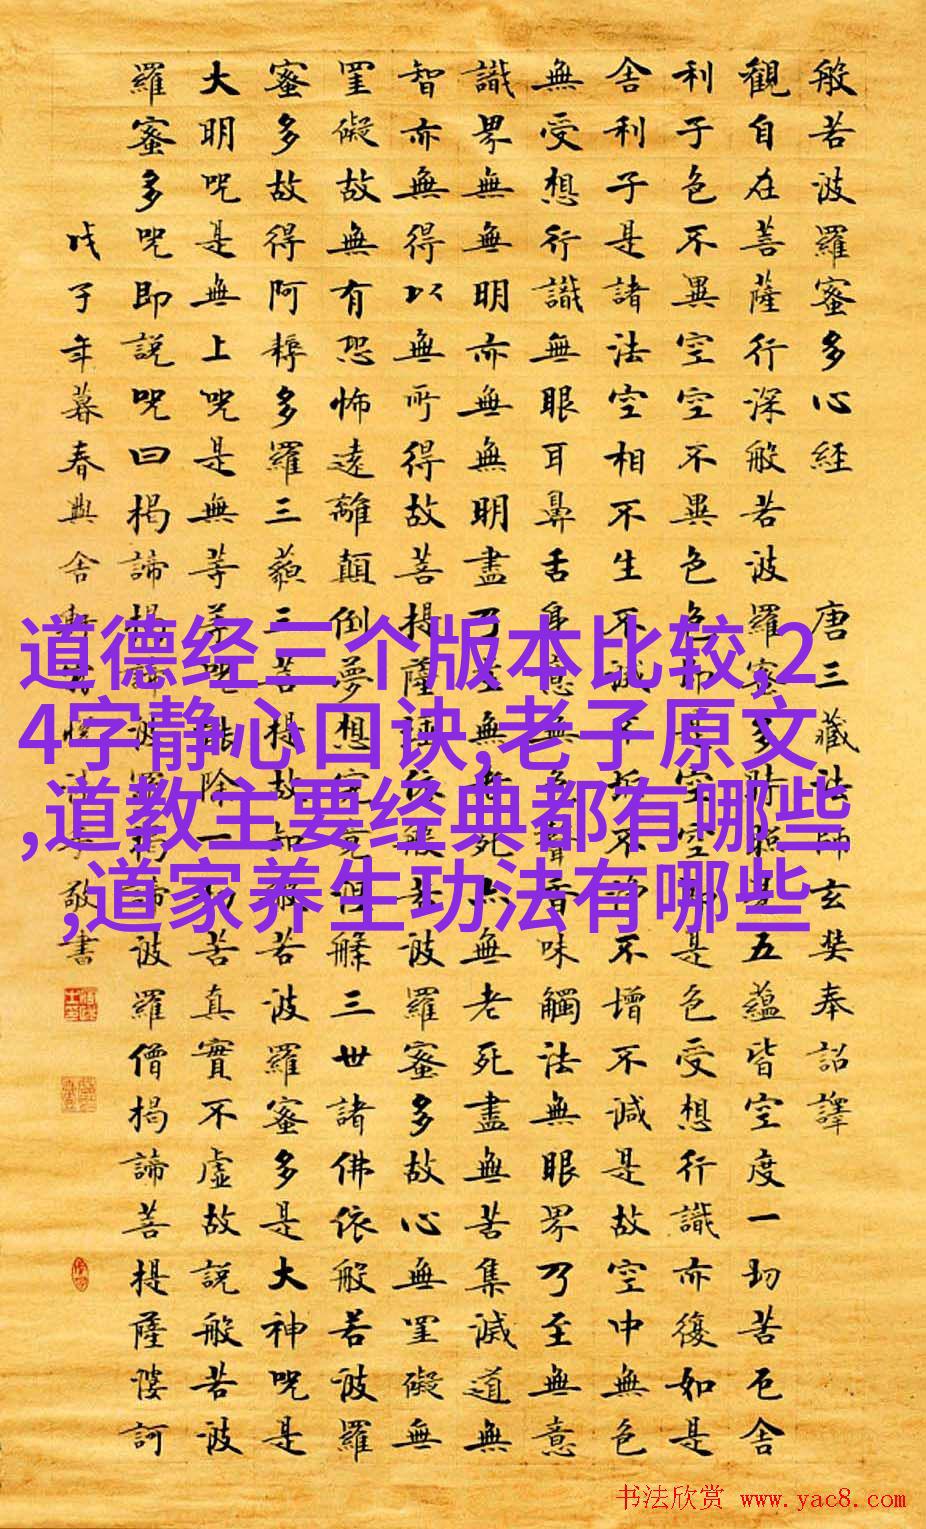 般若波羅蜜多心經 唐三藏法師玄奘奉詔譯
觀自在菩薩行深般若波羅蜜多時照見五蘊皆空度一切苦厄舍
利子色不異空空不異色色即是空空即是色受想行識亦復如是
舍利子是諸法空相不生不滅不垢不淨不增不減是故空中無色
無受想行識無眼耳鼻舌身意無色聲香味觸法無眼界乃至無意
識界無無明亦無無明盡乃至無老死亦無老死盡無苦集滅道無
智亦無得以無所得故菩提薩埵依般若波羅蜜多故心無罣礙無
罣礙故無有恐怖遠離顛倒夢想究竟涅槃三世諸佛依般若波羅
蜜多故得阿耨多羅三藐三菩提故知般若波羅蜜多是大神咒是
大明咒是無上咒是無等等咒能除一切苦真實不虛故說般若波
羅蜜多咒即說咒曰揭諦揭諦波羅揭諦波羅僧揭諦菩提薩婆訶
戊子年暮春 敬書
道德经三个版本比较,2
4字静心口诀,老子原文
,道教主要经典都有哪些
,道家养生功法有哪些
书法欣赏 www.yac8.com